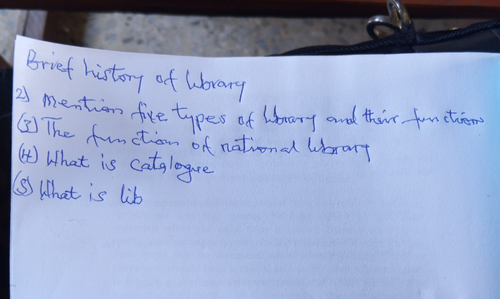 Brief history of library
2) Mention five types of library and their functions
(3) The function of national library
(4) What is catalogue
(5) What is lib